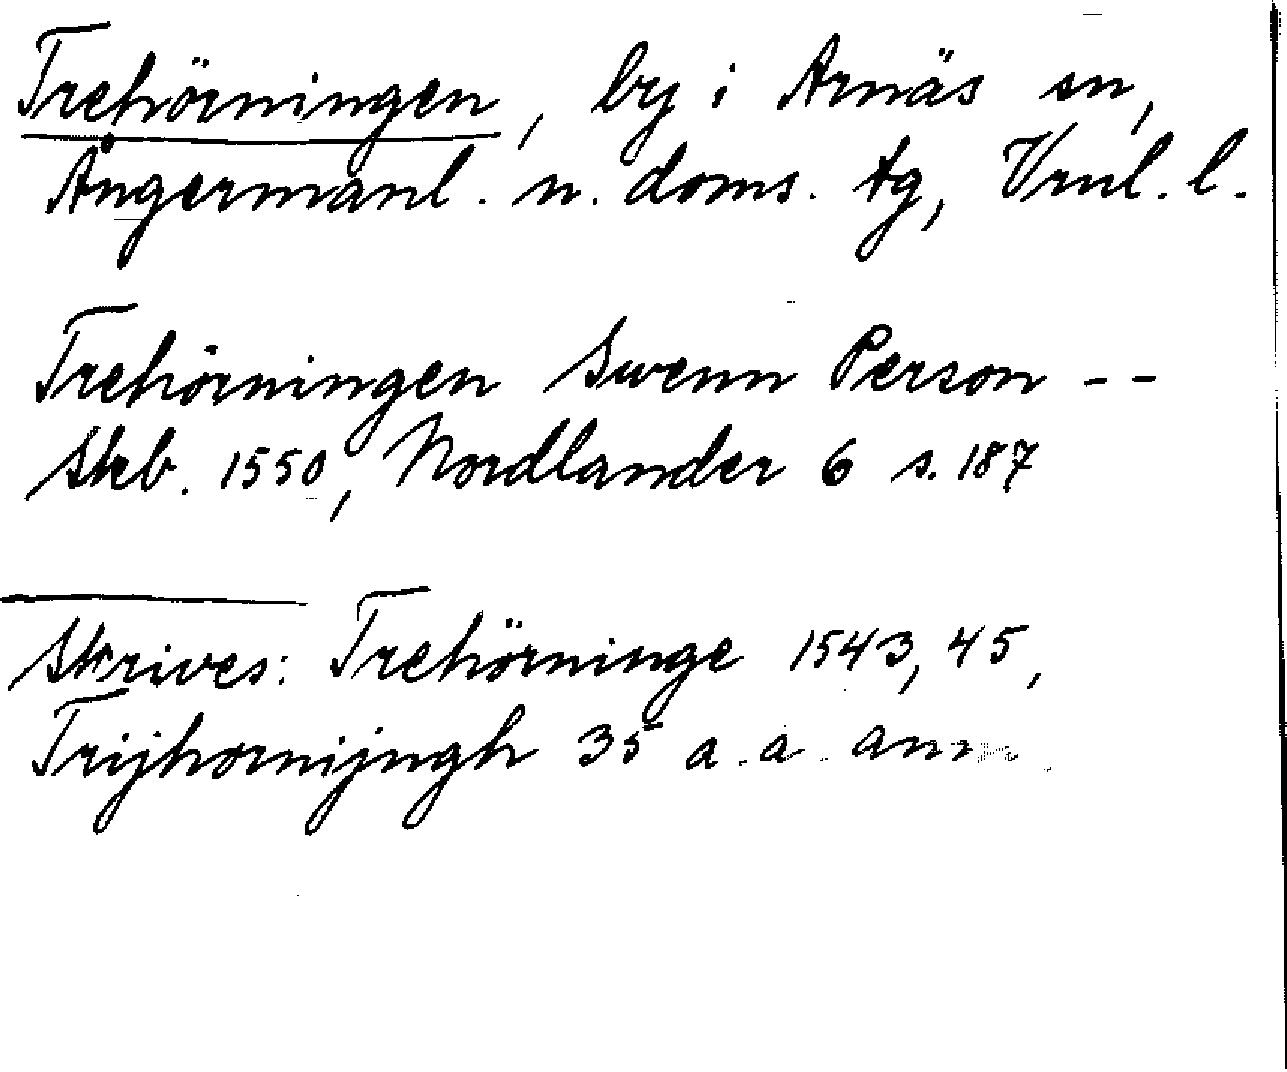 Trehörningen, by i Arnäs sn,
Ångermanl. n. doms. tg, Vrnl. l.
Trehörningen Swenn Person --
Skb. 1550, Nordlander 6 s. 187
Skrives: Trehörninge 1543, 45,
Trijhornijngh 35 a. a. anm.